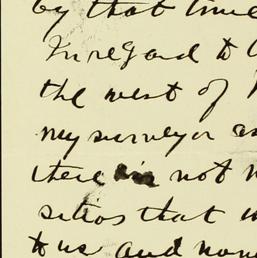 by that time
In regard to
the west of
my surveyor
there is not
sitios that
to us and